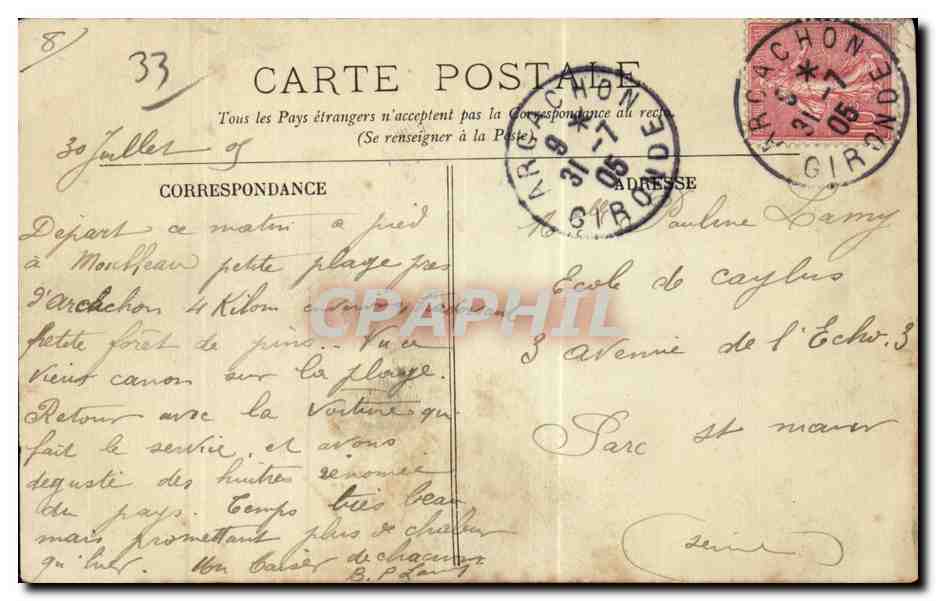 8)
33
CARTE POSTALE
Tous les Pays étrangers n'acceptent pas la Correspondance au recto.
(Se renseigner à la Poste)
ARCACHON
9 *
31 -7
05
GIRONDE
ARCACHON
*
31 -7
05
GIRONDE
30 Juillet 05
CORRESPONDANCE
Départ ce matin a pied
à Moulleau petite plage pres
d'Arcachon 4 Kilom
petite forêt de pins. Vu ce
vieux canon sur la plage.
Retour avec la voiture qui
fait le service et avons
degusté des huitres renomée
du pays. Temps très beau
mais promettant plus de chaleur
qu'hier. Un baiser de chacun
B. P Lamy
ADRESSE
Melle Pauline Lamy
Ecole de caylus
3 avenue de l'Echo. 3
Parc st maur
(seine)
CPAPHIL